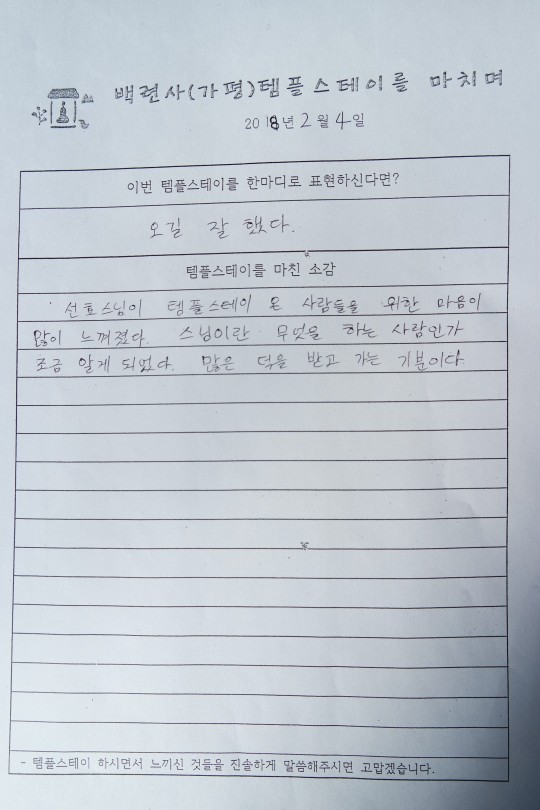 백련사(가평)템플스테이를 마치며
2018년 2월 4일
이번 템플스테이를 한마디로 표현하신다면?
오길 잘 했다.
템플스테이를 마친 소감
선효스님이 템플스테이 온 사람들을 위한 마음이
많이 느껴졌다. 스님이란 무엇을 하는 사람인가
조금 알게 되었다. 많은 덕을 받고 가는 기분이다.
- 템플스테이 하시면서 느끼신 것들을 진솔하게 말씀해주시면 고맙겠습니다.